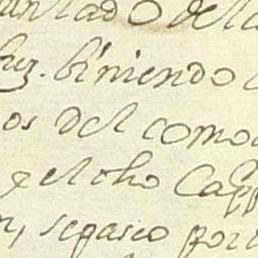 untado dela
huz. biniendo
os del como
x el dho Capp
n, sepaseo por